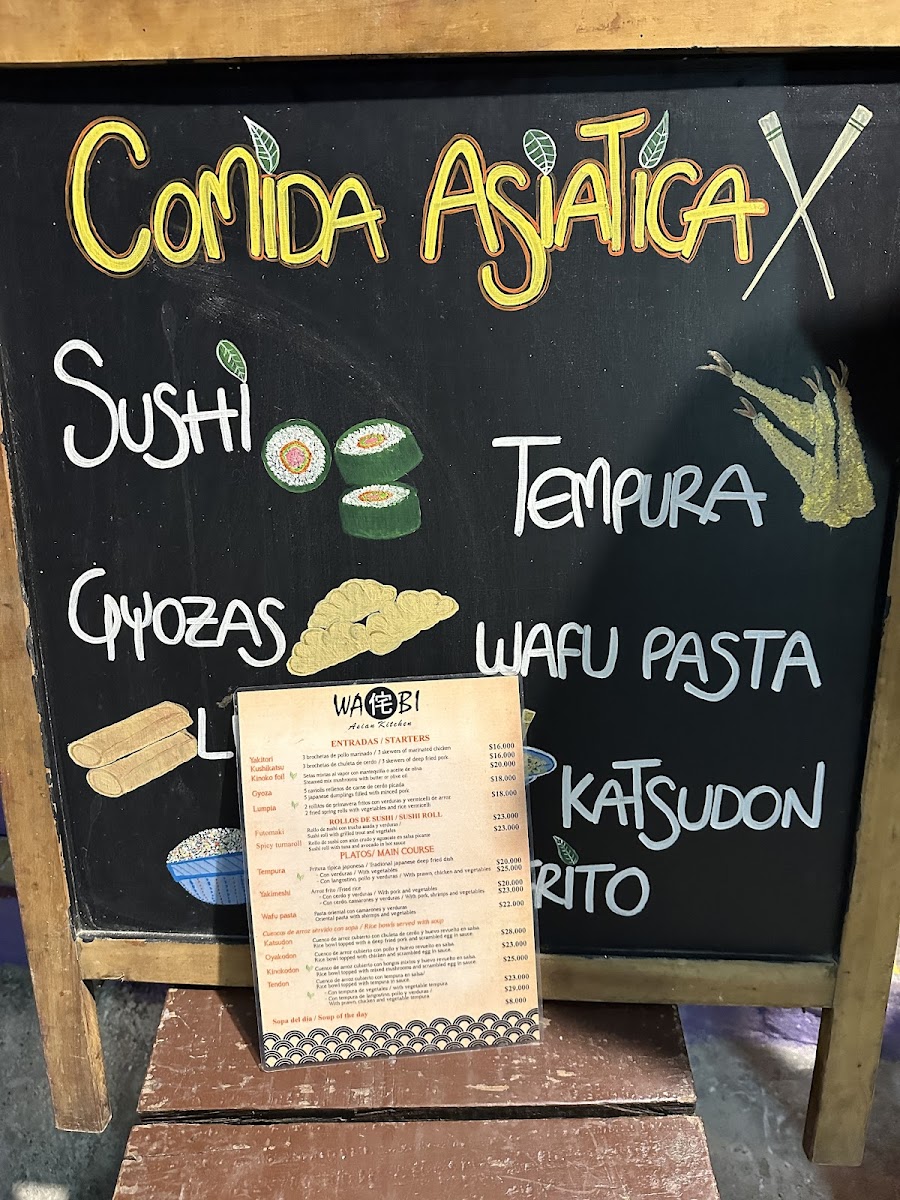 COMIDA ASIATICA
SUSHI
TEMPURA
GYOZAS
WAFU PASTA
L
KATSUDON
FRITO
WA侘BI
Asian Kitchen
ENTRADAS / STARTERS
Yakitori 3 brochetas de pollo marinado / 3 skewers of marinated chicken $16.000
Kushikatsu 3 brochetas de chuleta de cerdo / 3 skewers of deep fried pork $16.000
Kinoko foil Setas mixtas al vapor con mantequilla o aceite de oliva $20.000
Steamed mix mushrooms with butter or olive oil
Gyoza 5 raviolis rellenos de carne de cerdo picada $18.000
5 Japanese dumplings filled with minced pork
Lumpia 2 rollitos de primavera fritos con verduras y vermicelli de arroz $18.000
2 fried spring rolls with vegetables and rice vermicelli
ROLLOS DE SUSHI / SUSHI ROLL
Futomaki Rollo de sushi con trucha asada y verduras / $23.000
Sushi roll with grilled trout and vegetales
Spicy tunaroll Rollo de sushi con atún crudo y aguacate en salsa picante $23.000
Sushi roll with tuna and avocado in hot sauce
PLATOS/ MAIN COURSE
Tempura Fritura típica japonesa / Traditional japanese deep fried dish
- Con verduras / With vegetables $20.000
- Con langostino, pollo y verduras / With prawn, chicken and vegetables $25.000
Yakimeshi Arroz frito /Fried rice
- Con cerdo y verduras / With pork and vegetables $20.000
- Con cerdo, camarones y verduras / With pork, shrimps and vegetables $23.000
Wafu pasta Pasta oriental con camarones y verduras $22.000
Oriental pasta with shrimps and vegetables
Cuencos de arroz servido con sopa / Rice bowls served with soup
Katsudon Cuenco de arroz cubierto con chuleta de cerdo y huevo revuelto en salsa. $28.000
Rice bowl topped with a deep fried pork and scrambled egg in sauce.
Oyakodon Cuenco de arroz cubierta con pollo y huevo revuelto en salsa. $23.000
Rice bowl topped with chicken and scrambled egg in sauce.
Kinokodon Cuenco de arroz cubierto con hongos mixtos y huevo revuelto en salsa. $25.000
Rice bowl topped with mixed mushrooms and scrambled egg in sauce.
Tendon Cuenco de arroz cubierto con tempura en salsa/
Rice bowl topped with tempura in sauce.
- Con tempura de vegetales / with vegetable tempura $23.000
- Con tempura de langostino, pollo y verduras / $29.000
With prawn, chicken and vegetable tempura
Sopa del día / Soup of the day $8.000